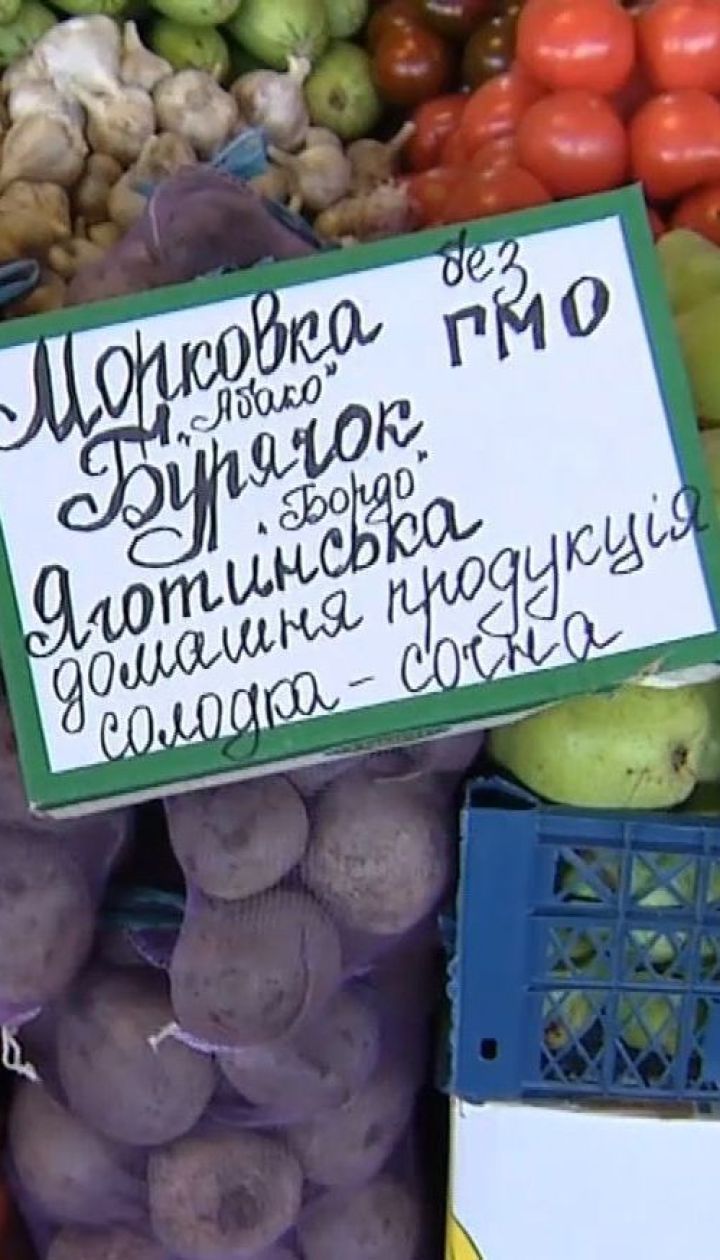 Морковка без
"Абако" ГМО
Бурячок
"Бордо"
Яготинська
домашня продукція
солодка - сочна